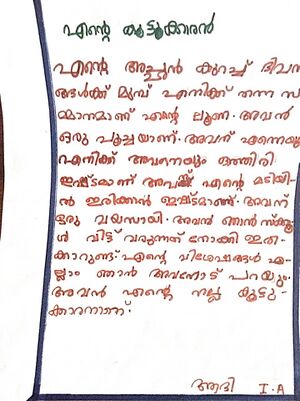 എന്റെ കൂട്ടുക്കാരൻ
എന്റെ അച്ഛൻ കുറച്ച് ദിവസ
ങ്ങൾക്ക് മുമ്പ് എനിക്ക് തന്ന സ
മ്മാനമാണ് എന്റെ ലൂണ. അവൻ
ഒരു പൂച്ചയാണ്. അവന് എന്നെയും
എനിക്ക് അവനെയും ഒത്തിരി
ഇഷ്ടമാണ് അവന് എന്റെ മടിയി
ൽ ഇരിക്കാൻ ഇഷ്ടമാണ്. അവന്
ഒരു വയസായി. അവൻ ഞാൻ സ്ക്കൂ
ൾ വിട്ട് വരുന്നത് നോക്കി ഇരി
ക്കാറുണ്ട്. എന്റെ വിശേഷങ്ങൾ എ
ല്ലാം ഞാൻ അവനോട് പറയും.
അവൻ എന്റെ നല്ല കൂട്ടു-
ക്കാരനാണ്.
ആദി I.A